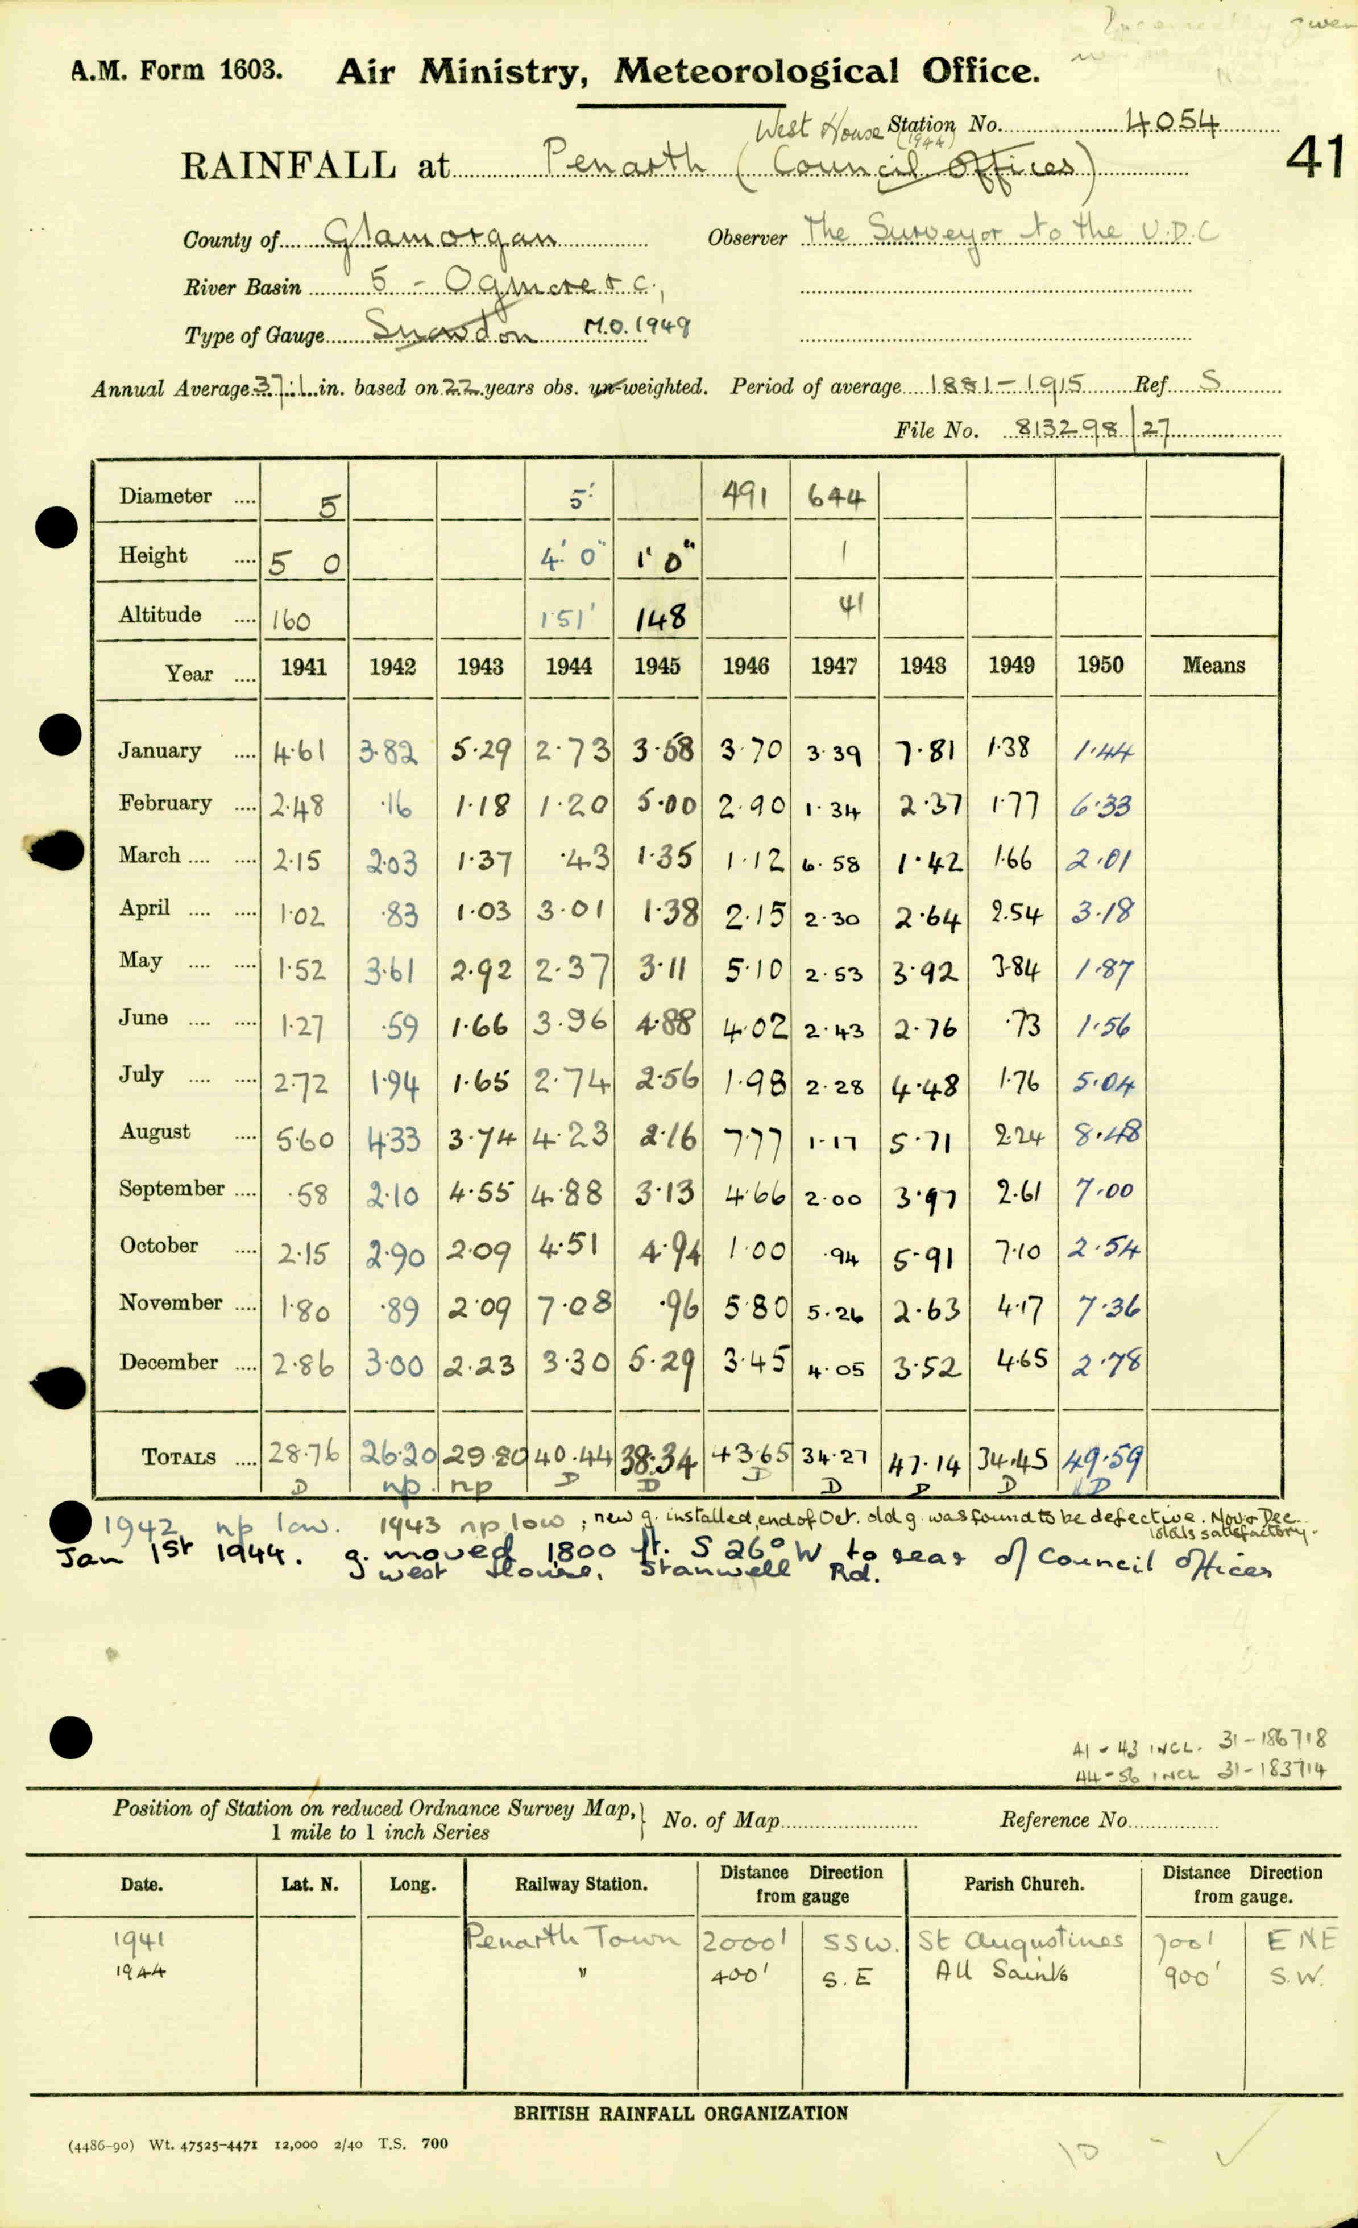 A.M. Form 1603. Air Ministry, Meteorological Office.
West House Station No. 4054
(1944)
41
RAINFALL at Penarth (Council Offices)
County of Glamorgan Observer The Surveyor to the U.D.C
River Basin 5 - Ogmore & c.,
Type of Gauge Snowdon M.O. 1949
Annual Average 37.1 in. based on 22 years obs. un-weighted. Period of average 1881-1915 Ref S
File No. 813298/27
Diameter .... 5 5" 491 644
Height .... 5 0 4' 0" 1' 0" 1
Altitude .... 160 151' 148 41
Year .... 1941 1942 1943 1944 1945 1946 1947 1948 1949 1950 Means
January .... 4.61 3.82 5.29 2.73 3.58 3.70 3.39 7.81 1.38 1.44
February .... 2.48 .16 1.18 1.20 5.00 2.90 1.34 2.37 1.77 6.33
March .... .... 2.15 2.03 1.37 .43 1.35 1.12 6.58 1.42 1.66 2.01
April .... .... 1.02 .83 1.03 3.01 1.38 2.15 2.30 2.64 2.54 3.18
May .... .... 1.52 3.61 2.92 2.37 3.11 5.10 2.53 3.92 3.84 1.87
June .... .... 1.27 .59 1.66 3.96 4.88 4.02 2.43 2.76 .73 1.56
July .... .... 2.72 1.94 1.65 2.74 2.56 1.98 2.28 4.48 1.76 5.04
August .... 5.60 4.33 3.74 4.23 2.16 7.77 1.17 5.71 2.24 8.48
September .... .58 2.10 4.55 4.88 3.13 4.66 2.00 3.97 2.61 7.00
October .... 2.15 2.90 2.09 4.51 4.94 1.00 .94 5.91 7.10 2.54
November .... 1.80 .89 2.09 7.08 .96 5.80 5.26 2.63 4.17 7.36
December .... 2.86 3.00 2.23 3.30 5.29 3.45 4.05 3.52 4.65 2.78
TOTALS .... 28.76 26.20 29.80 40.44 38.34 43.65 34.27 47.14 34.45 49.59
D np. np D D D D D D D
1942 np low. 1943 np low; new g. installed end of Oct. old g. was found to be defective. Nov & Dec
totals satisfactory.
Jan 1st 1944. g. moved 1800 ft. S 26° W to rear of Council offices
West House, Stanwell Rd.
41 - 43 INCL. 31-186718
44-56 INCL 31-183714
Position of Station on reduced Ordnance Survey Map,} No. of Map Reference No.
1 mile to 1 inch Series
Date. Lat. N. Long. Railway Station. Distance Direction from gauge Parish Church. Distance Direction from gauge.
1941 Penarth Town 2000' SSW. St Augustines 700' ENE
1944 " 400' S.E All Saints 900' S.W.
BRITISH RAINFALL ORGANIZATION
(4486-90) Wt. 47525-4471 12,000 2/40 T.S. 700